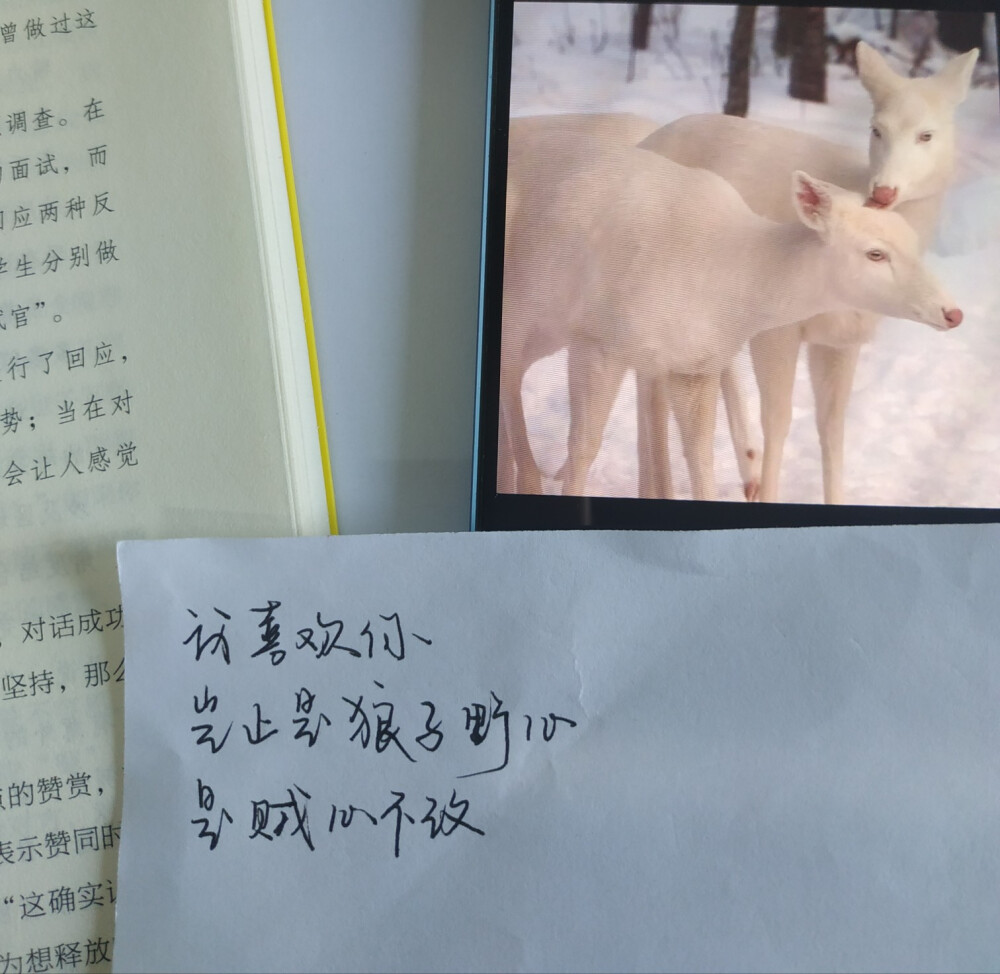 曾做过这
调查。在
面试，而
应两种反
学生分别做
官”。
行了回应，
势；当在对
会让人感觉
，对话成功
坚持，那么
的赞赏，
表示赞同时
“这确实
为想释放
喜欢你
岂止是狼子野心
是贼心不改